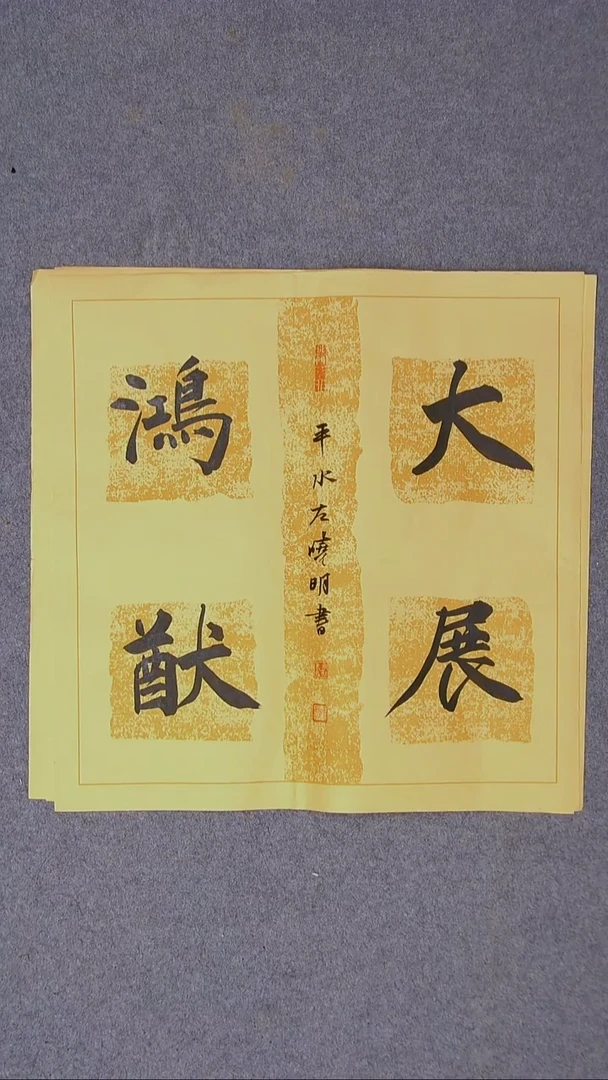 大展
鸿猷
平水左晓明書